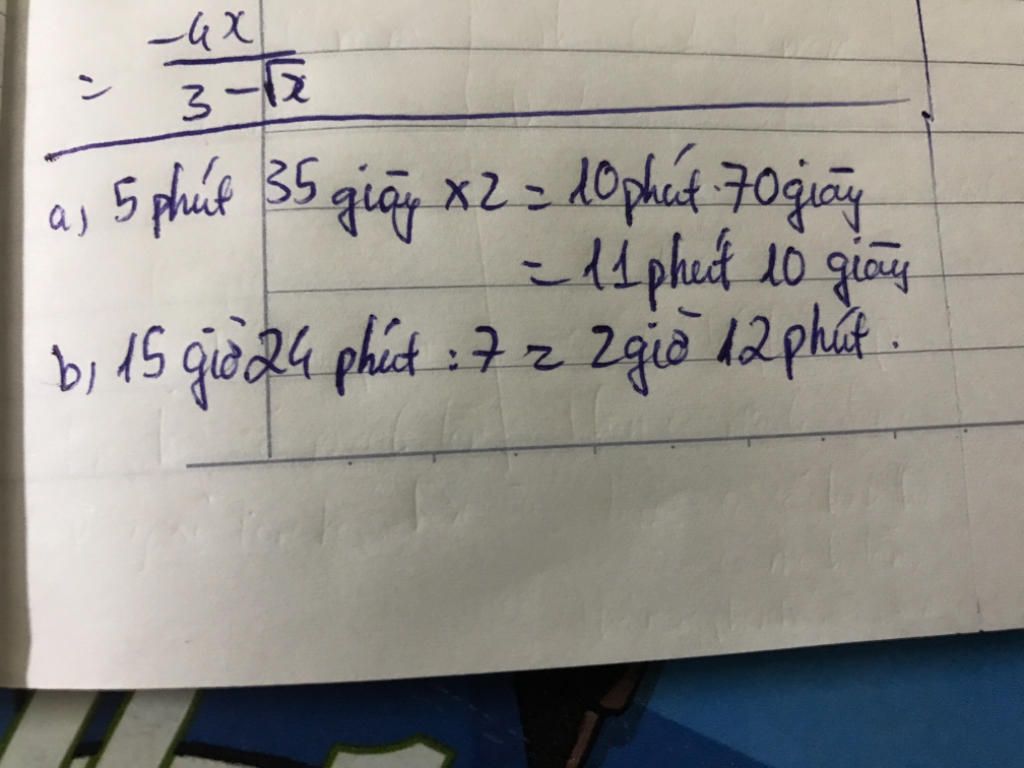 = -4x / 3 - √x
a, 5 phút 35 giây x 2 = 10 phút 70 giây
= 11 phút 10 giây
b, 15 giờ 24 phút : 7 = 2 giờ 12 phút.